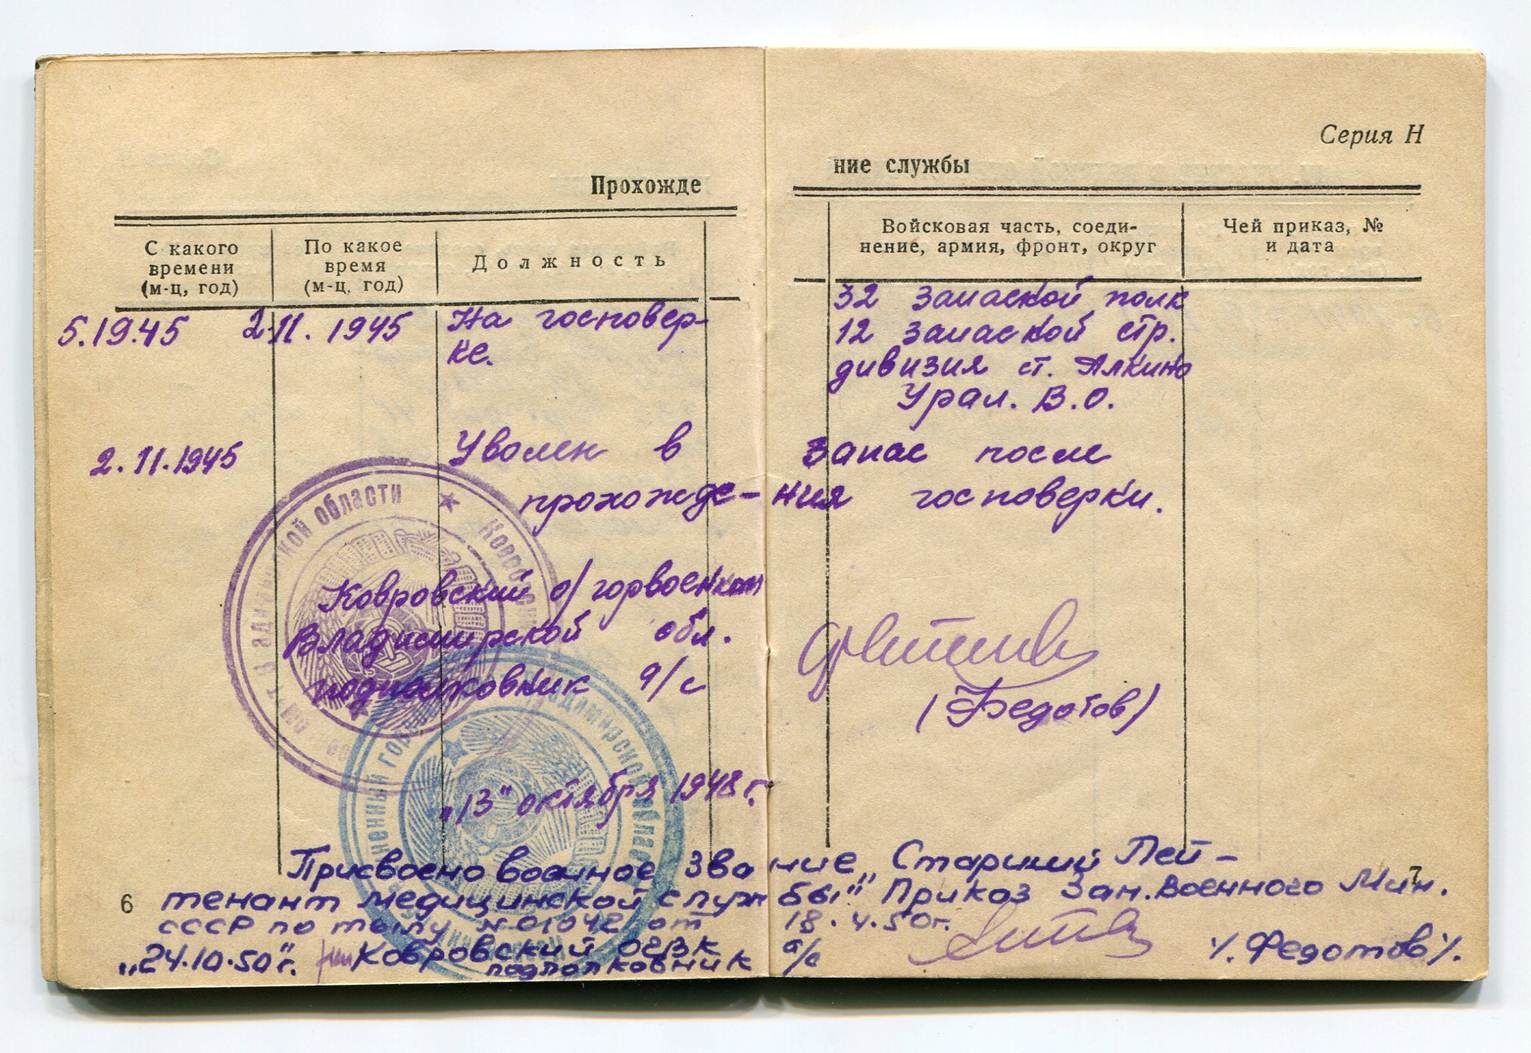 Серия Н
Прохожде
ние службы
С какого
времени
(м-ц, год)
По какое
время
(м-ц, год)
Должность
Войсковая часть, соеди-
нение, армия, фронт, округ
Чей приказ, №
и дата
5.1945
2.11.1945
На госповер-
ке.
32 запасной полк
12 запасной стр.
дивизия ст. Алкино
Урал. В.О.
2.11.1945
Уволен в запас после
прохождения госповерки.
Ковровский о/горвоенком
Владимирской обл.
подполковник а/с
(Федотов)
„13" октября 1948 г.
Присвоено военное звание „Старший Лей-
тенант медицинской службы" Приказ Зам. Военного Мин.
СССР по тылу №01042 от 18.4.50г.
„24.10.50"г. Ковровский ОГВК
подполковник а/с /.Федотов/.
6
7